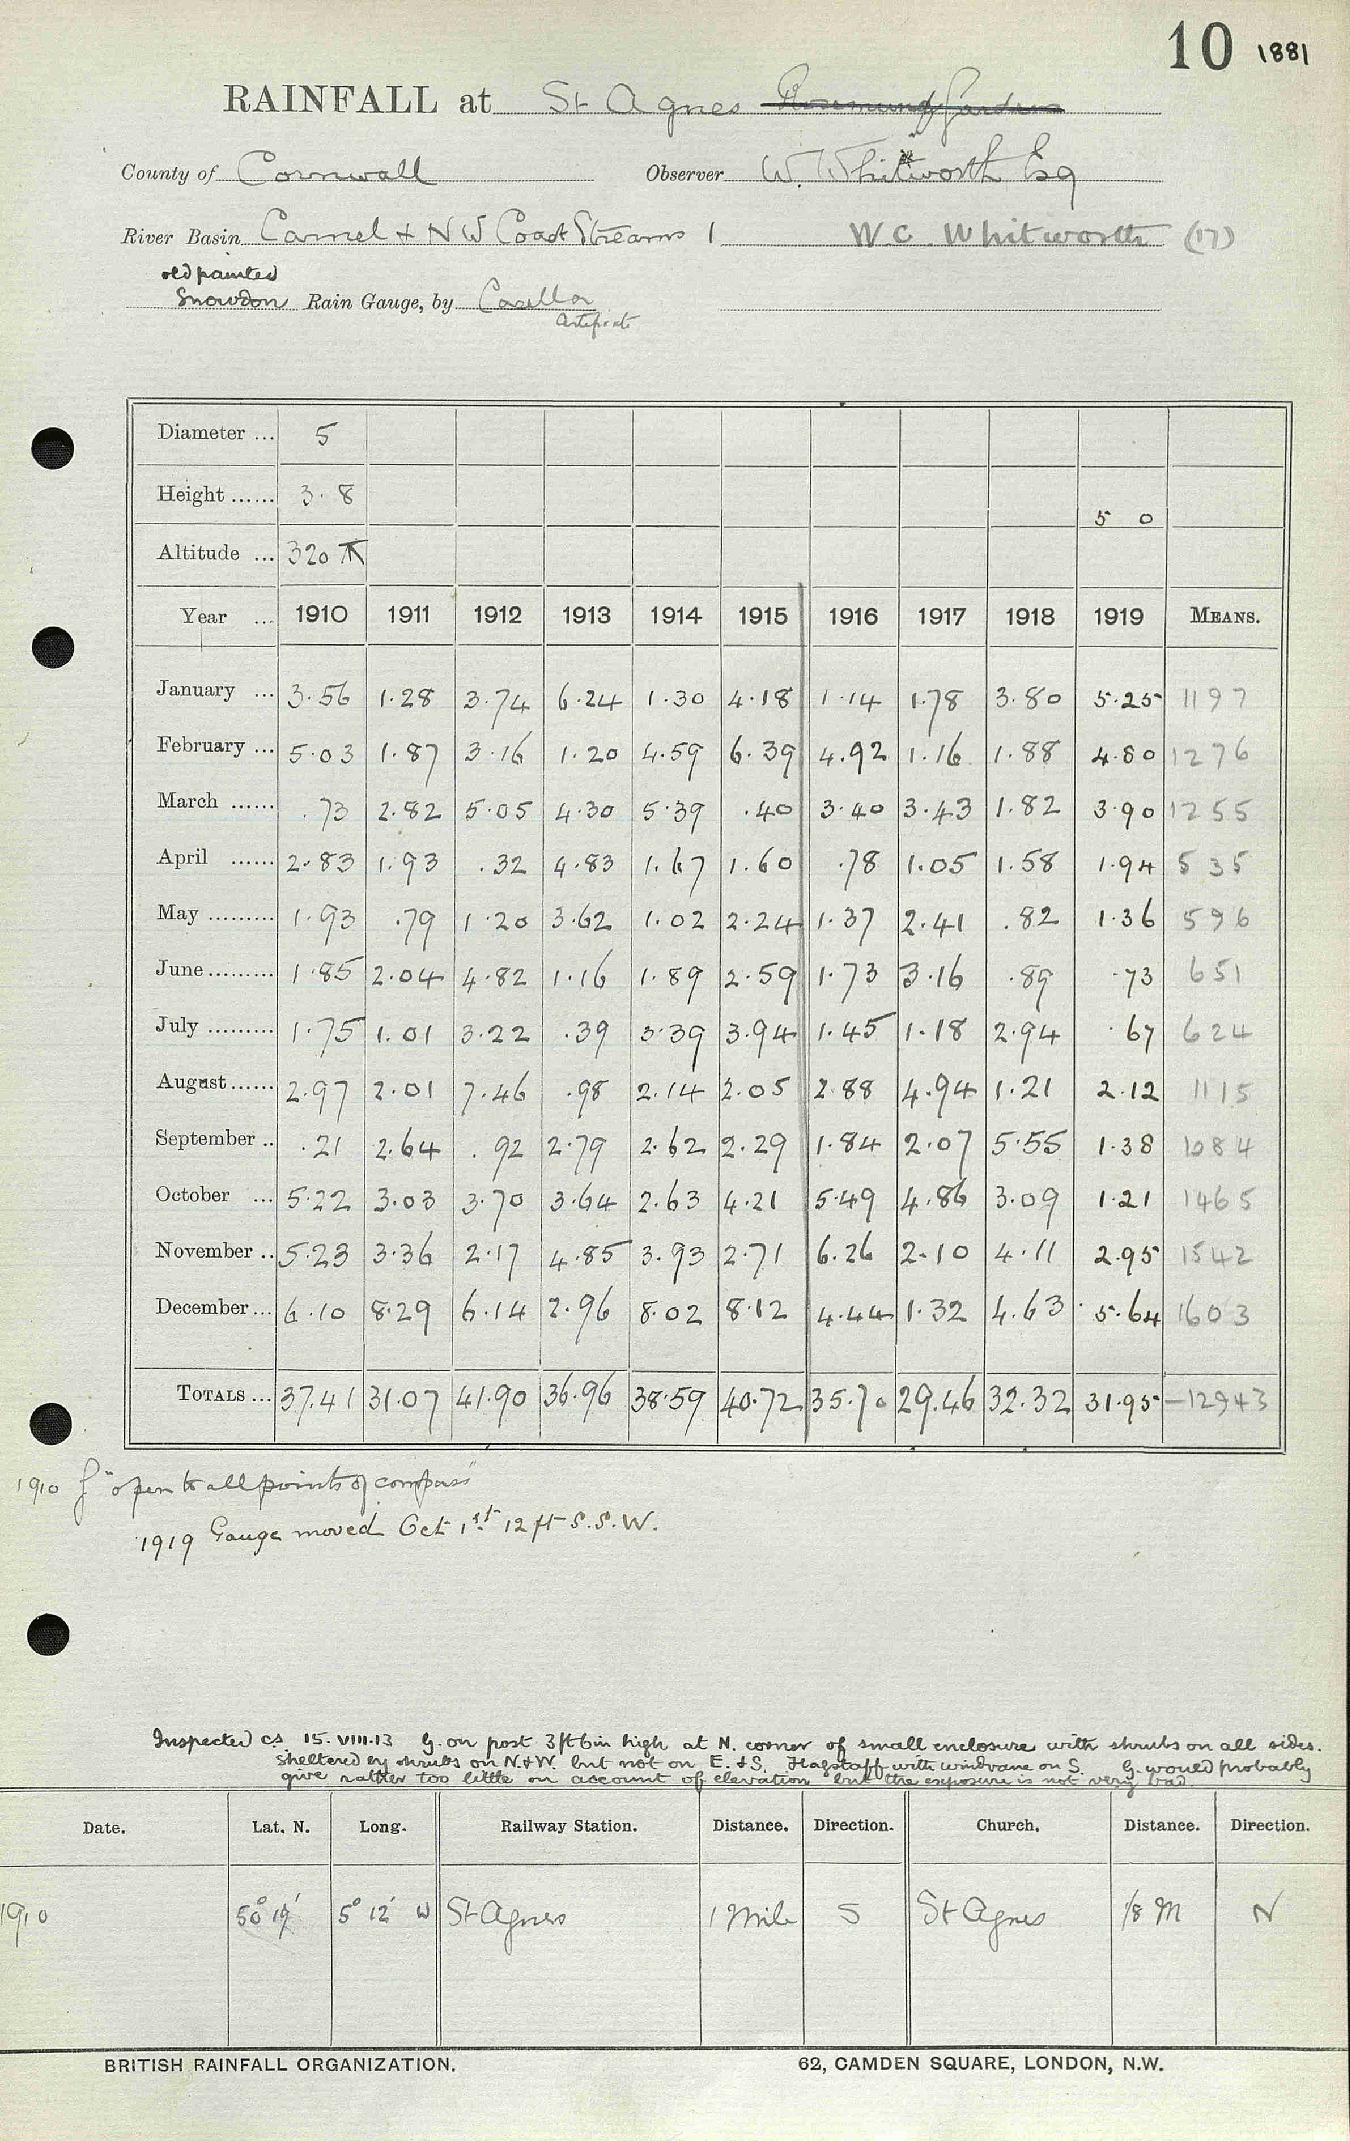 10 1881
RAINFALL at St Agnes
County of Cornwall Observer W. Whitworth Esq
River Basin Camel & NW Coast Streams 1 W C Whitworth (17)
old painted
Snowdon Rain Gauge, by Casella
Diameter ... 5
Height ...... 3.8 5 0
Altitude ... 320
Year ... 1910 1911 1912 1913 1914 1915 1916 1917 1918 1919 MEANS.
January ... 3.56 1.28 3.74 6.24 1.30 4.18 1.14 1.78 3.80 5.25 1197
February ... 5.03 1.87 3.16 1.20 4.59 6.39 4.92 1.16 1.88 4.80 1276
March ...... .73 2.82 5.05 4.30 5.39 .40 3.40 3.43 1.82 3.90 1255
April ...... 2.83 1.93 .32 4.83 1.67 1.60 .78 1.05 1.58 1.94 535
May ......... 1.93 .79 1.20 3.62 1.02 2.24 1.37 2.41 .82 1.36 596
June ......... 1.85 2.04 4.82 1.16 1.89 2.59 1.73 3.16 .89 .73 651
July ......... 1.75 1.01 3.22 .39 3.39 3.94 1.45 1.18 2.94 .67 624
August ...... 2.97 2.01 7.46 .98 2.14 2.05 2.88 4.94 1.21 2.12 1115
September .. .21 2.64 .92 2.79 2.62 2.29 1.84 2.07 5.55 1.38 1084
October ... 5.22 3.03 3.70 3.64 2.63 4.21 5.49 4.86 3.09 1.21 1465
November .. 5.23 3.36 2.17 4.85 3.93 2.71 6.26 2.10 4.11 2.95 1542
December ... 6.10 8.29 6.14 2.96 8.02 8.12 4.44 1.32 4.63 5.64 1603
TOTALS ... 37.41 31.07 41.90 36.96 38.59 40.72 35.70 29.46 32.32 31.95 12943
1910 G "open to all points of compass"
1919 Gauge moved Oct 1st 12 ft S.S.W.
Inspected cs. 15.VIII.13 G. on post 3ft 6in high at N. corner of small enclosure with shrubs on all sides.
sheltered by shrubs on N & W. but not on E. & S. Flagstaff with windvane on S. G. would probably
give rather too little on account of elevation but the exposure is not very bad
Date. Lat. N. Long. Railway Station. Distance. Direction. Church. Distance. Direction.
1910 50° 19' 5° 12' W St Agnes 1 Mile S St Agnes 1/8 M N
BRITISH RAINFALL ORGANIZATION. 62, CAMDEN SQUARE, LONDON, N.W.